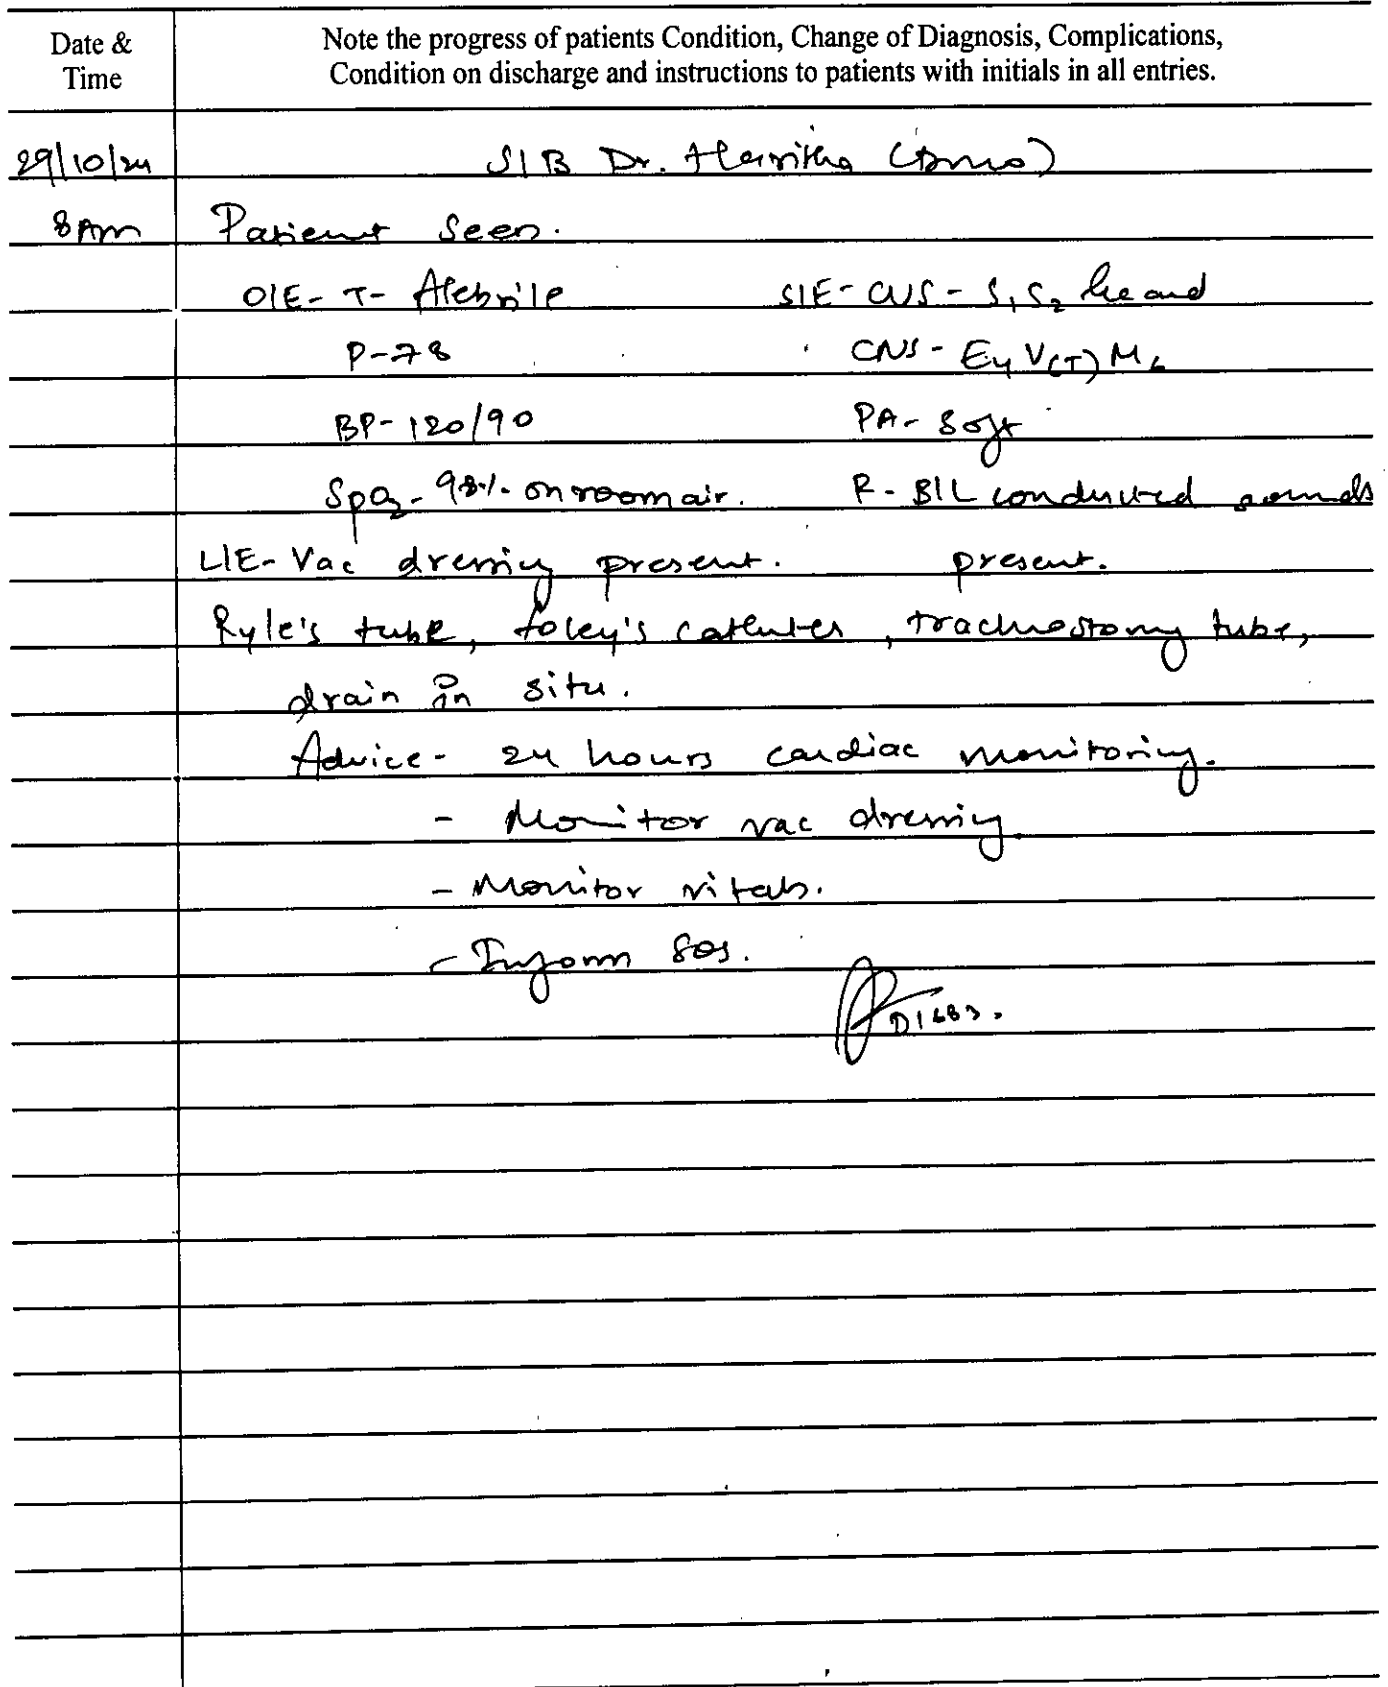 Date & Time
Note the progress of patients Condition, Change of Diagnosis, Complications,
Condition on discharge and instructions to patients with initials in all entries.
29/10/24 S/B Dr. Haritha (DMO)
8 Am Patient seen.
O/E - T - Afebrile S/E - CVS - S1, S2 heard
P - 78 CNS - E4 V(T) M6
BP - 120/90 PA - Soft
SpO2 - 98% on room air. R - B/L conducted sounds
L/E - Vac dressing present. present.
Ryle's tube, foley's catheter, tracheostomy tube,
drain in situ.
Advice - 24 hours cardiac monitoring.
- Monitor vac dressing
- Monitor vitals.
- Inform SOS.